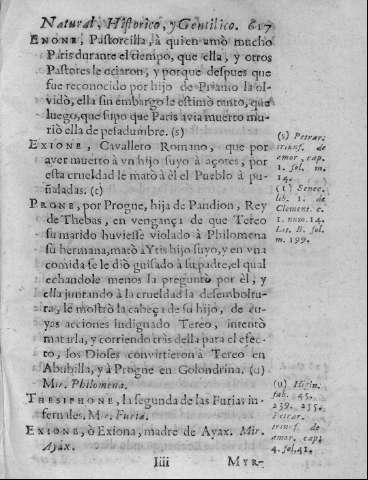 Natural, Historico, y Gentilico. 617
ENONE, Pastorcilla, à quien amò mucho
Paris durante el tiempo, que ella, y otros
Pastores le criaron, y porque despues que
fue reconocido por hijo de Priamo la ol-
vidò, ella sin embargo le estimò tanto, que
luego, que supo que Paris avia muerto mu-
riò ella de pesadumbre. (s)
EXIONE, Cavallero Romano, que por
aver muerto à vn hijo suyo à açotes, por
esta crueldad le matò à èl el Pueblo à pu-
ñaladas. (t)
PRONE, por Progne, hija de Pandion, Rey
de Thebas, en vengança de que Tereo
su marido huviesse violado à Philomena
su hermana, matò à Ytis hijo suyo, y en vna
comida se le diò guisado à su padre, el qual
echandole menos la preguntò por èl, y
ella juntando à la crueldad la desemboltu-
ra, le mostrò la cabeça de su hijo, de cu-
yas acciones indignado Tereo, intentò
matarla, y corriendo tràs della para el efec-
to, los Dioses convirtieron à Tereo en
Abubilla, y à Progne en Golondrina. (u)
Mir. Philomena.
THESIPHONE, la segunda de las Furias in-
fernales. Mir. Furia.
EXIONE, ò Exiona, madre de Ayax. Mir.
Ayax.
Iiii MYR-
(s) Petrar.
triunf. de
amor, cap.
1. fol. m.
14.
(t) Senec.
lib. 1. de
Clement. c.
1. num. 14.
Lit. B. fol.
m. 199.
(u) Higin.
fab. 45.
239. 255.
Petrar.
triunf. de
amor. cap.
4. fol. 41.